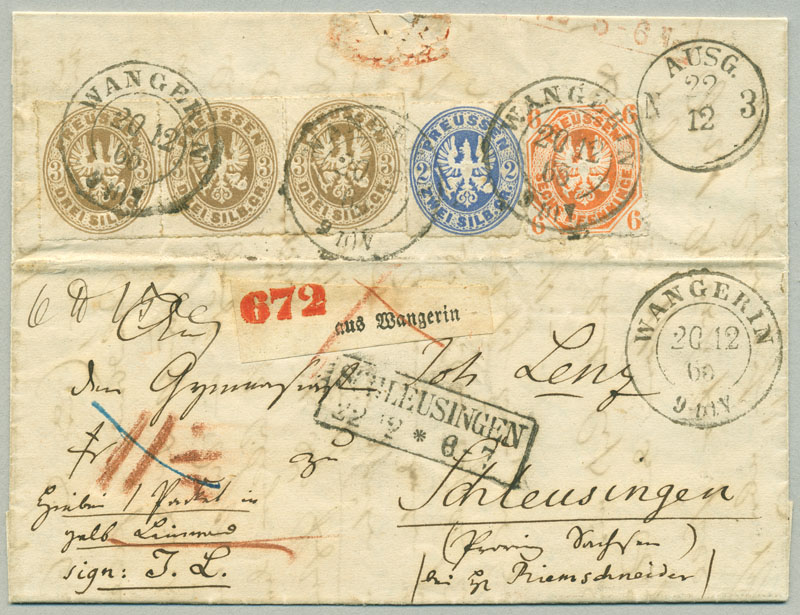 AUSG.
N 22 3
12
WANGERIN
20 12
66
PREUSSEN
3 3
DREI SILB. GR.
PREUSSEN
3 3
DREI SILB. GR.
PREUSSEN
3 3
DREI SILB. GR.
PREUSSEN
2 2
ZWEI SILB. GR.
6 6
PREUSSEN
SECHS PFENNINGE
6 6
WANGERIN
20 12
WANGERIN
20 12
66
672
aus Wangerin
den Gymnasiast Joh Lenz
SCHLEUSINGEN
22 12 * 6-7
zu
Schleusingen
(Provinz Sachsen)
bei Hr Riemschneider
Hiebei 1 Packet in
gelb Leinwand
sign: J. L.